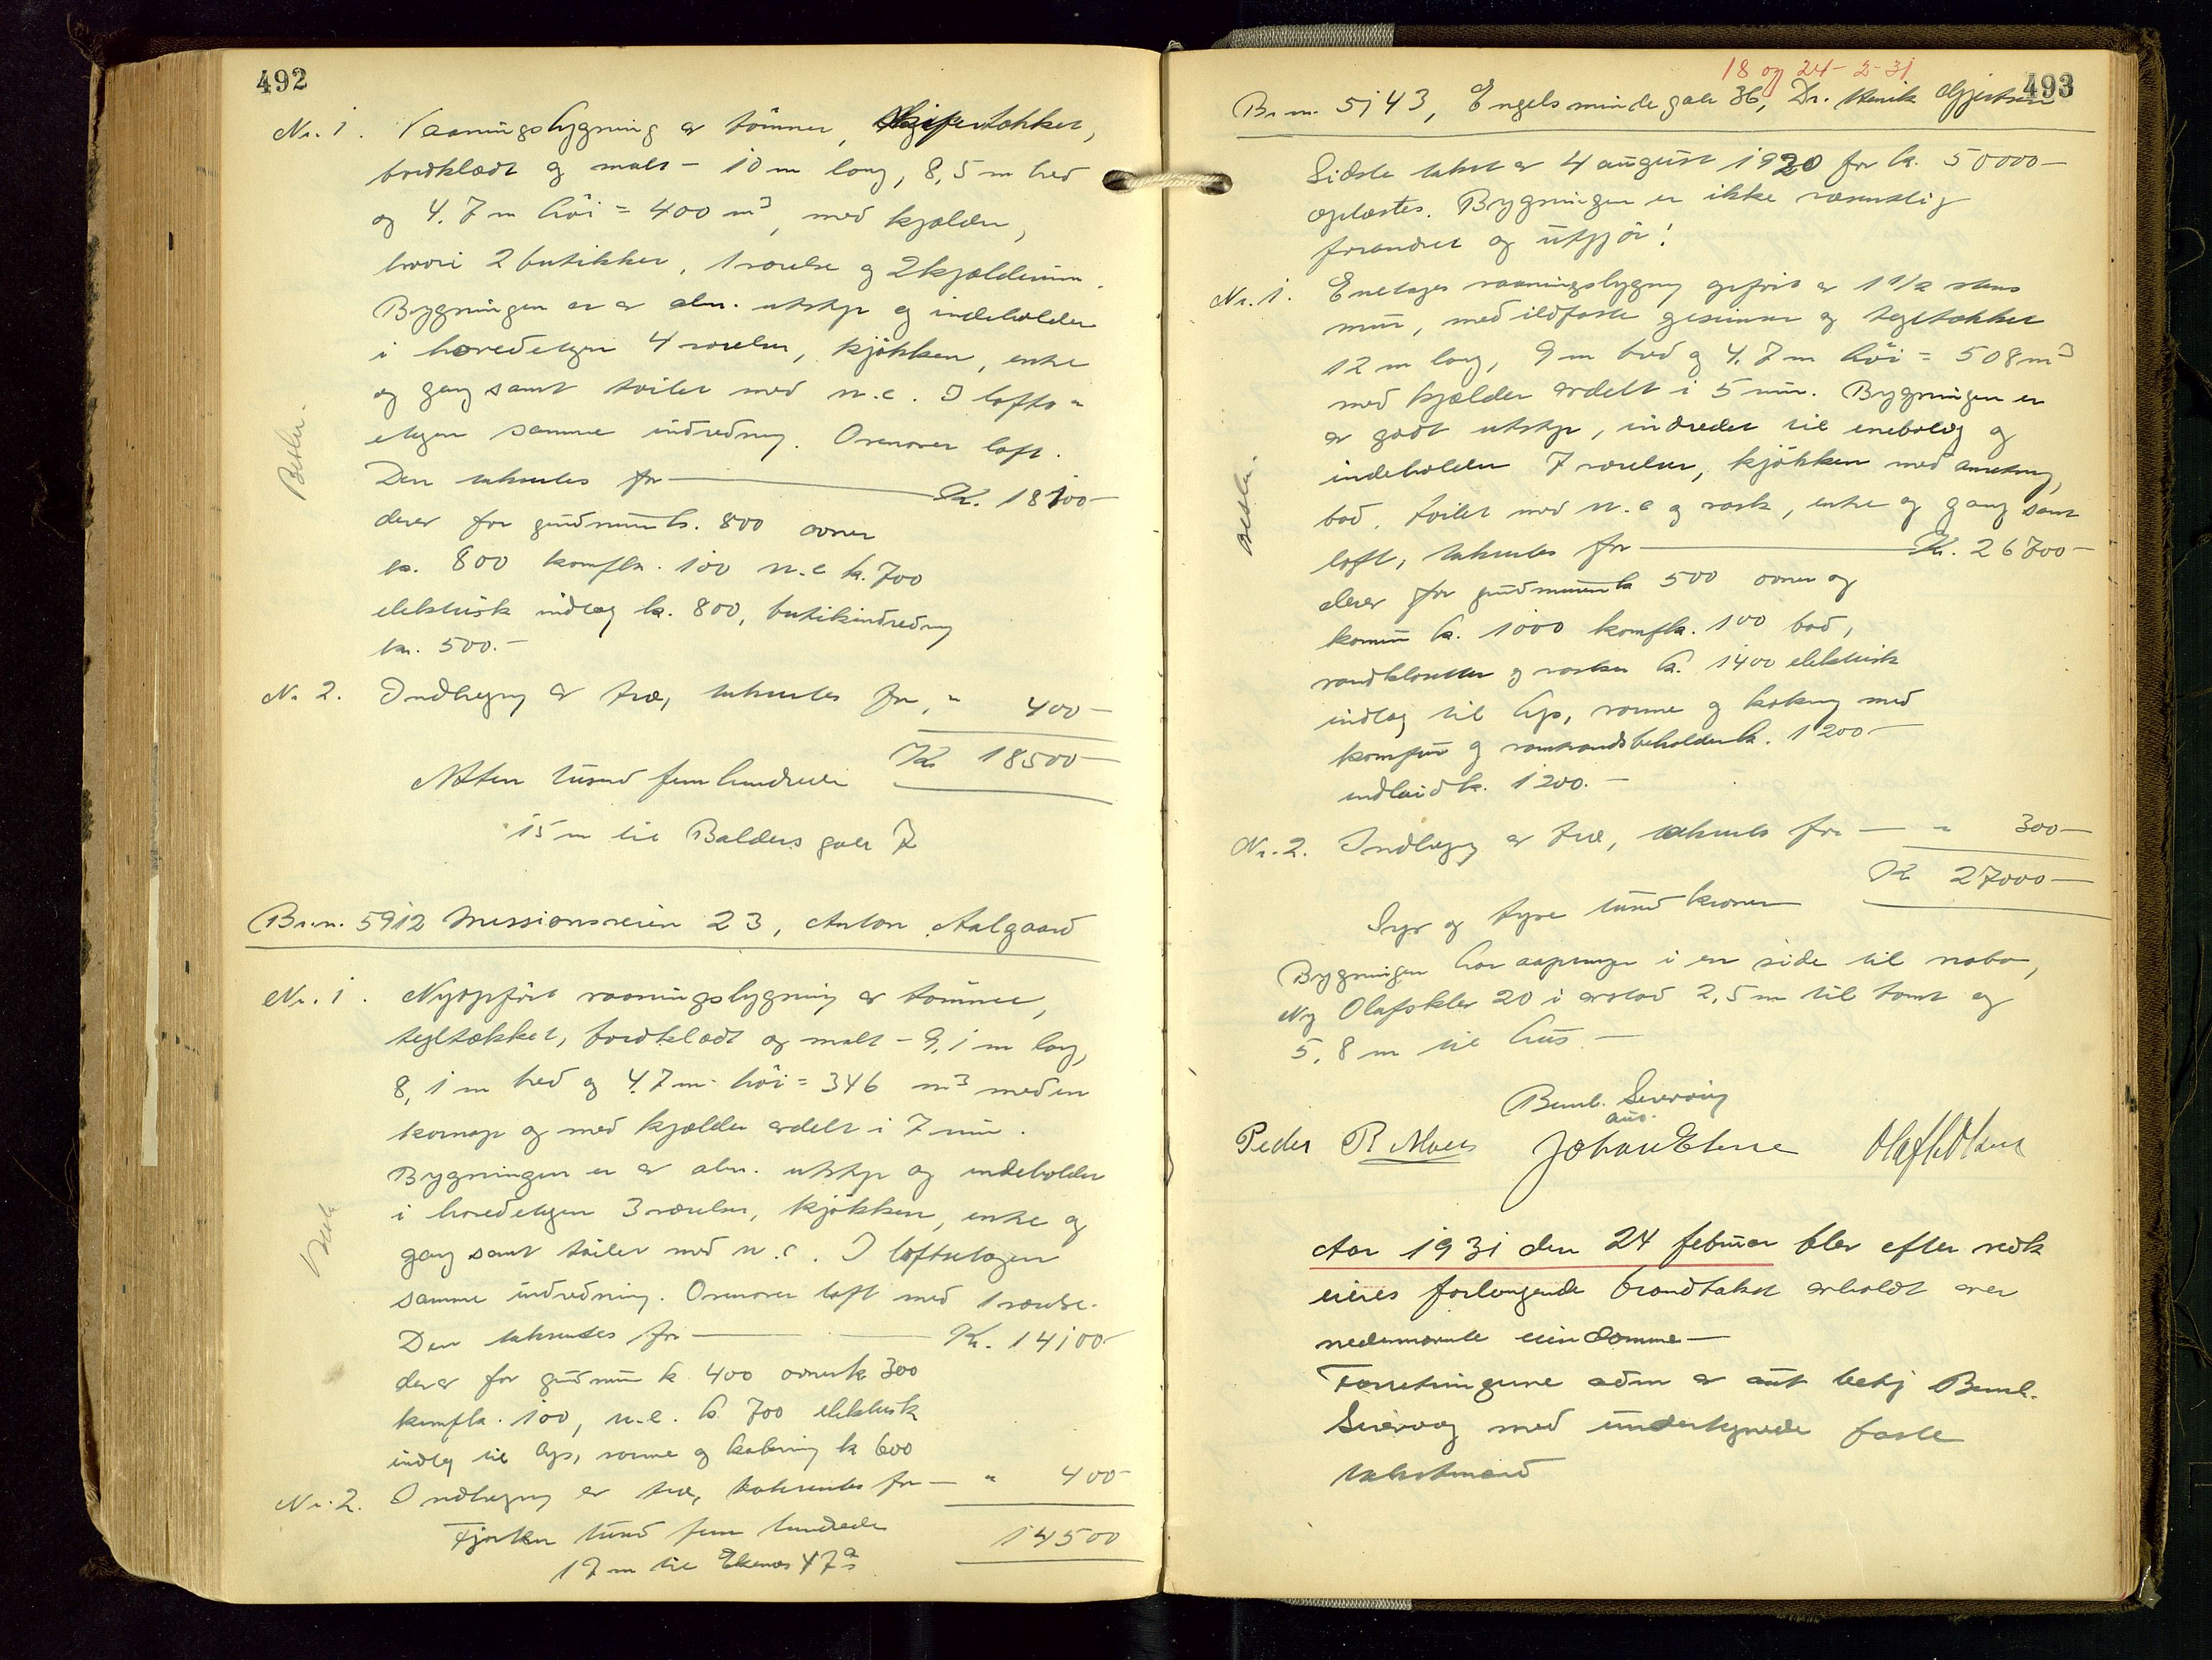 492
Nr. 1. Vaaningsbygning av tömmer, skifertækket,
bordklædt og malt - 10 m lang, 8,5 m bred
og 4.7 m höi = 400 m³, med kjælder,
hvori 2 butikker, 1 værelse og 2 kjælderrum.
Bygningen er av alm. utstyr og indeholder
i hovedetagen 4 værelser, kjökken, entre
og gang samt toilet med w.c. I lofts-
etagen samme indredning. Ovenover loft.
Den takseres for Kr. 18100-
derav for grundmur kr. 800 ovner
kr. 800 komfkr. 100 w.c kr. 700
elektrisk indlæg kr. 800, butikindredning
kr. 500.-
Nr. 2. Indhegning av træ, takseres for, " 400-
Kr 18500-
Atten tusind fem hundrede
15 m til Balders gate 7
Beskr.
Br.n. 5912 Missionsveien 23, Anton Aalgaard
Nr. 1. Nyopfört vaaningsbygning av tömmer,
tegltækket, bordklædt og malt - 9,1 m lang,
8,1 m bred og 4.7 m höi = 346 m³ med en
kornap og med kjælder avdelt i 7 rum.
Bygningen er av alm. utstyr og indeholder
i hovedetagen 3 værelser, kjökken, entre og
gang samt toilet med w.c. I loftsetagen
samme indredning. Ovenover loft med 1 værelse.
Den takseres for Kr. 14100-
derav for grundmur kr 400 ovner kr 300
komfkr. 100, w.c. kr. 700 elektrisk
indlæg til lys, varme og kokning kr 600
Nr. 2. Indhegning av træ, takseres for - " 400-
14500
Fjorten tusind fem hundrede
17 m til Ekenes 47ª
Beskr
493
18 og 24-2-31
Br.nr. 5143, Engelsminde gate 36, Dr. Henrik Gjertsen
Sidste takst av 4 august 1920 for kr. 50000-
oplæstes. Bygningen er ikke væsentlig
forandret og utgjör:
Nr. 1. Enetages vaaningsbygning opfört av 1 1/2 stens
mur, med ildfaste gesimser og tegltækket
12 m lang, 9 m bred og 4.7 m höi = 508 m³
med kjælder avdelt i 5 rum. Bygningen er
av godt utstyr, indredet til enebolig og
indeholder 7 værelser, kjökken med anretning,
bad, toilet med w.c og vask, entre og gang samt
loft, takseres for Kr. 26700-
derav for grundmur kr 500 ovner og
kamin kr. 1000 komfkr. 100 bad,
vandklosetter og vasker kr. 1400 elektrisk
indlæg til lys, varme og kokning med
komfur og varmvandsbeholder kr. 1200-
indbud kr. 1200.-
Nr. 2. Indhegning av træ, takseres for - " 300-
Kr 27000-
Syv og tyve tusind kroner
Bygningen har aapninger i en side til nabo,
Ny Olafsklev 20 i avstad 2,5 m til tomt og
5,8 m til hus.-
Beskr.
Bernh. Sivervig
aut.
Peder R Moen Johan Elene Olaf H Olsen
Aar 1931 den 24 februar blev efter vedk
eieres forlangende brandtakst avholdt over
nedennævnte eiendomme-
Forretningene adm av aut bestj Bernh.
Siverviig med undertegnede faste
takstmænd